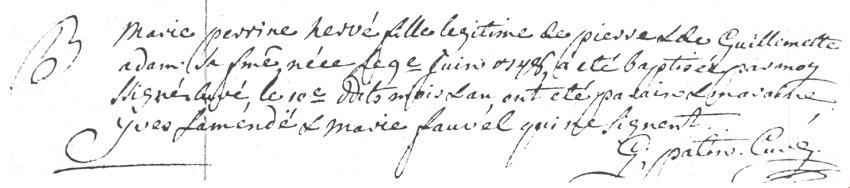 B Marie perrine hervé fille legitime de pierre & de Guillemette
adam Sa fmē, néee le 9e juin, a été baptisée par moy
Signé, le 10e dits mois & an, ont été parain & maraine
Yves Lamendé & Marie fauvél qui ne Signent.
G; patin. Curé.